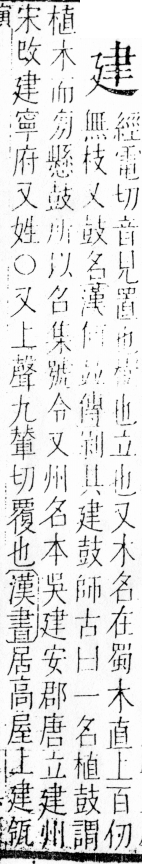 建
經電切音見置也樹也立也又木名在蜀木直上百仞
無枝又鼓名漢何並傳剥其建鼓師古曰一名植鼓謂
植木而旁懸鼓所以召集號令又州名本吳建安郡唐立建州
宋改建寧府又姓○又上聲九輦切覆也漢書居高屋上建瓴